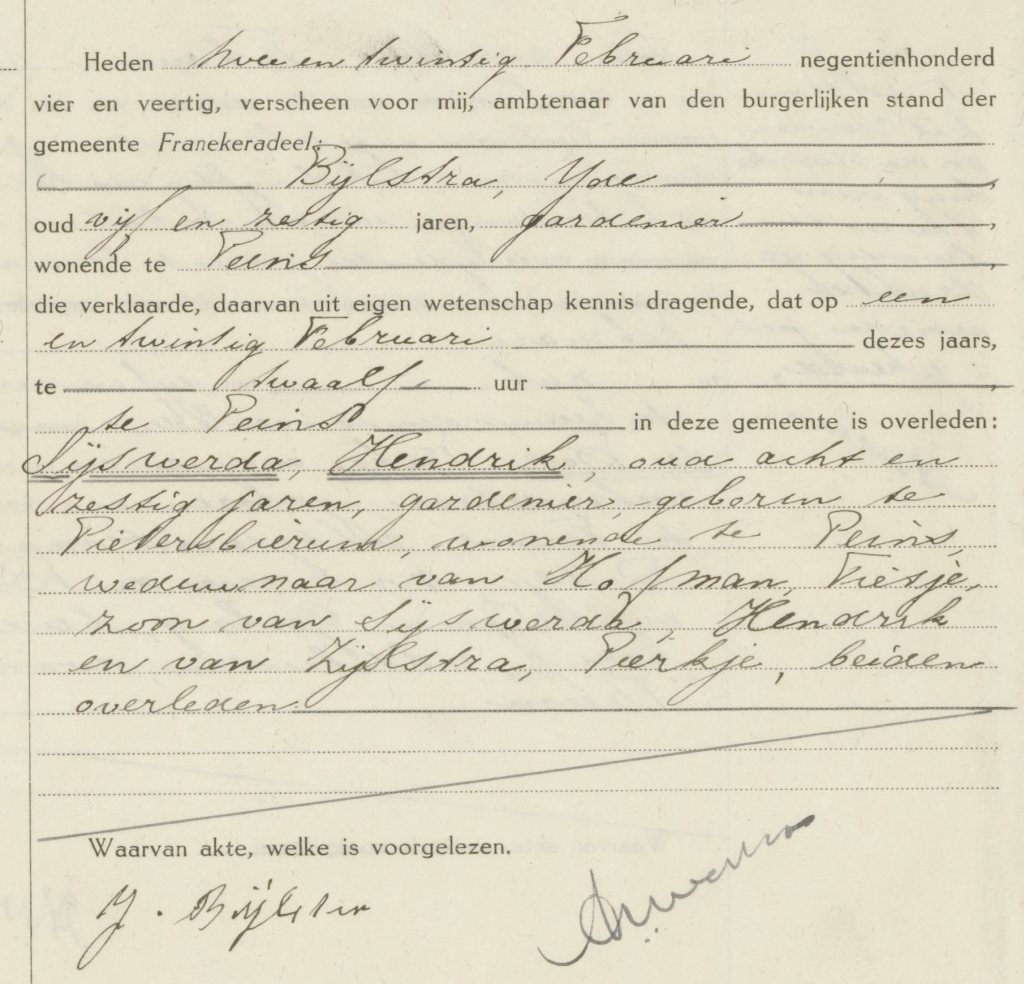 Heden twee en twintig Februari negentienhonderd
vier en veertig, verscheen voor mij, ambtenaar van den burgerlijken stand der
gemeente Franekeradeel:
Bijlstra, Yde
oud vijf en zestig jaren, gardenier,
wonende te Peins,
die verklaarde, daarvan uit eigen wetenschap kennis dragende, dat op een
en twintig Februari dezes jaars,
te twaalf uur,
te Peins in deze gemeente is overleden:
Sijswerda, Hendrik, oud acht en
zestig jaren, gardenier, geboren te
Pietersbierum, wonende te Peins,
weduwnaar van Hofman, Fietje,
zoon van Sijswerda, Hendrik
en van Zijlstra, Pierkje, beiden
overleden.
Waarvan akte, welke is voorgelezen.
Y. Bijlstra